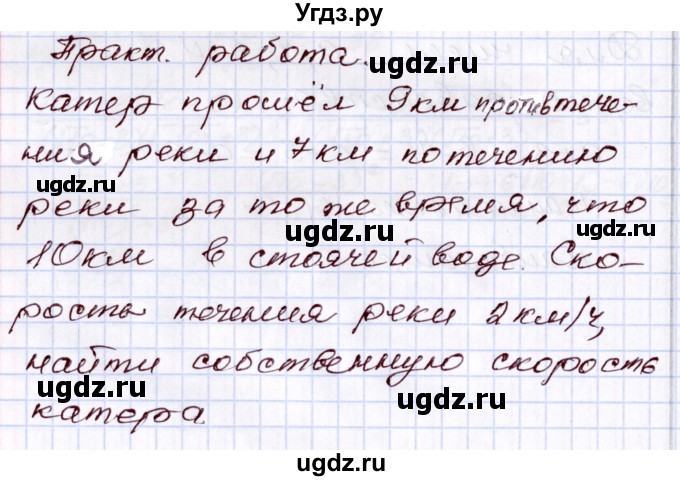 Угдз.ру
Практ. работа.
Катер прошёл 9км против тече-
ния реки и 7 км по течению
реки за то же время, что
10 км в стоячей воде. Ско-
рость течения реки 2 км/ч,
найти собственную скорость
катера
ugdz.ru
ugdz.ru
ugdz.ru
ugdz.ru
ugdz.ru
ugdz.ru
ugdz.ru
ugdz.ru
ugdz.ru